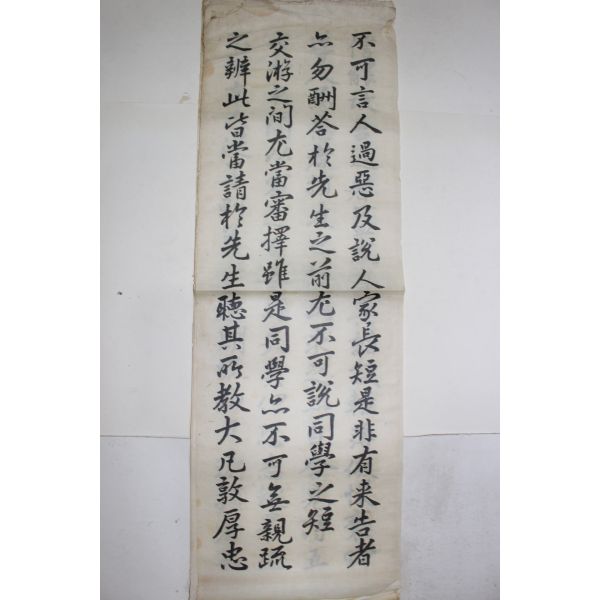 不可言人過惡及說人家長短是非有来告者
亦勿酬荅於先生之前尤不可說同學之短
交游之間尤當審擇雖是同學亦不可無親疏
之辨此皆當請於先生聽其所教大凡敦厚忠